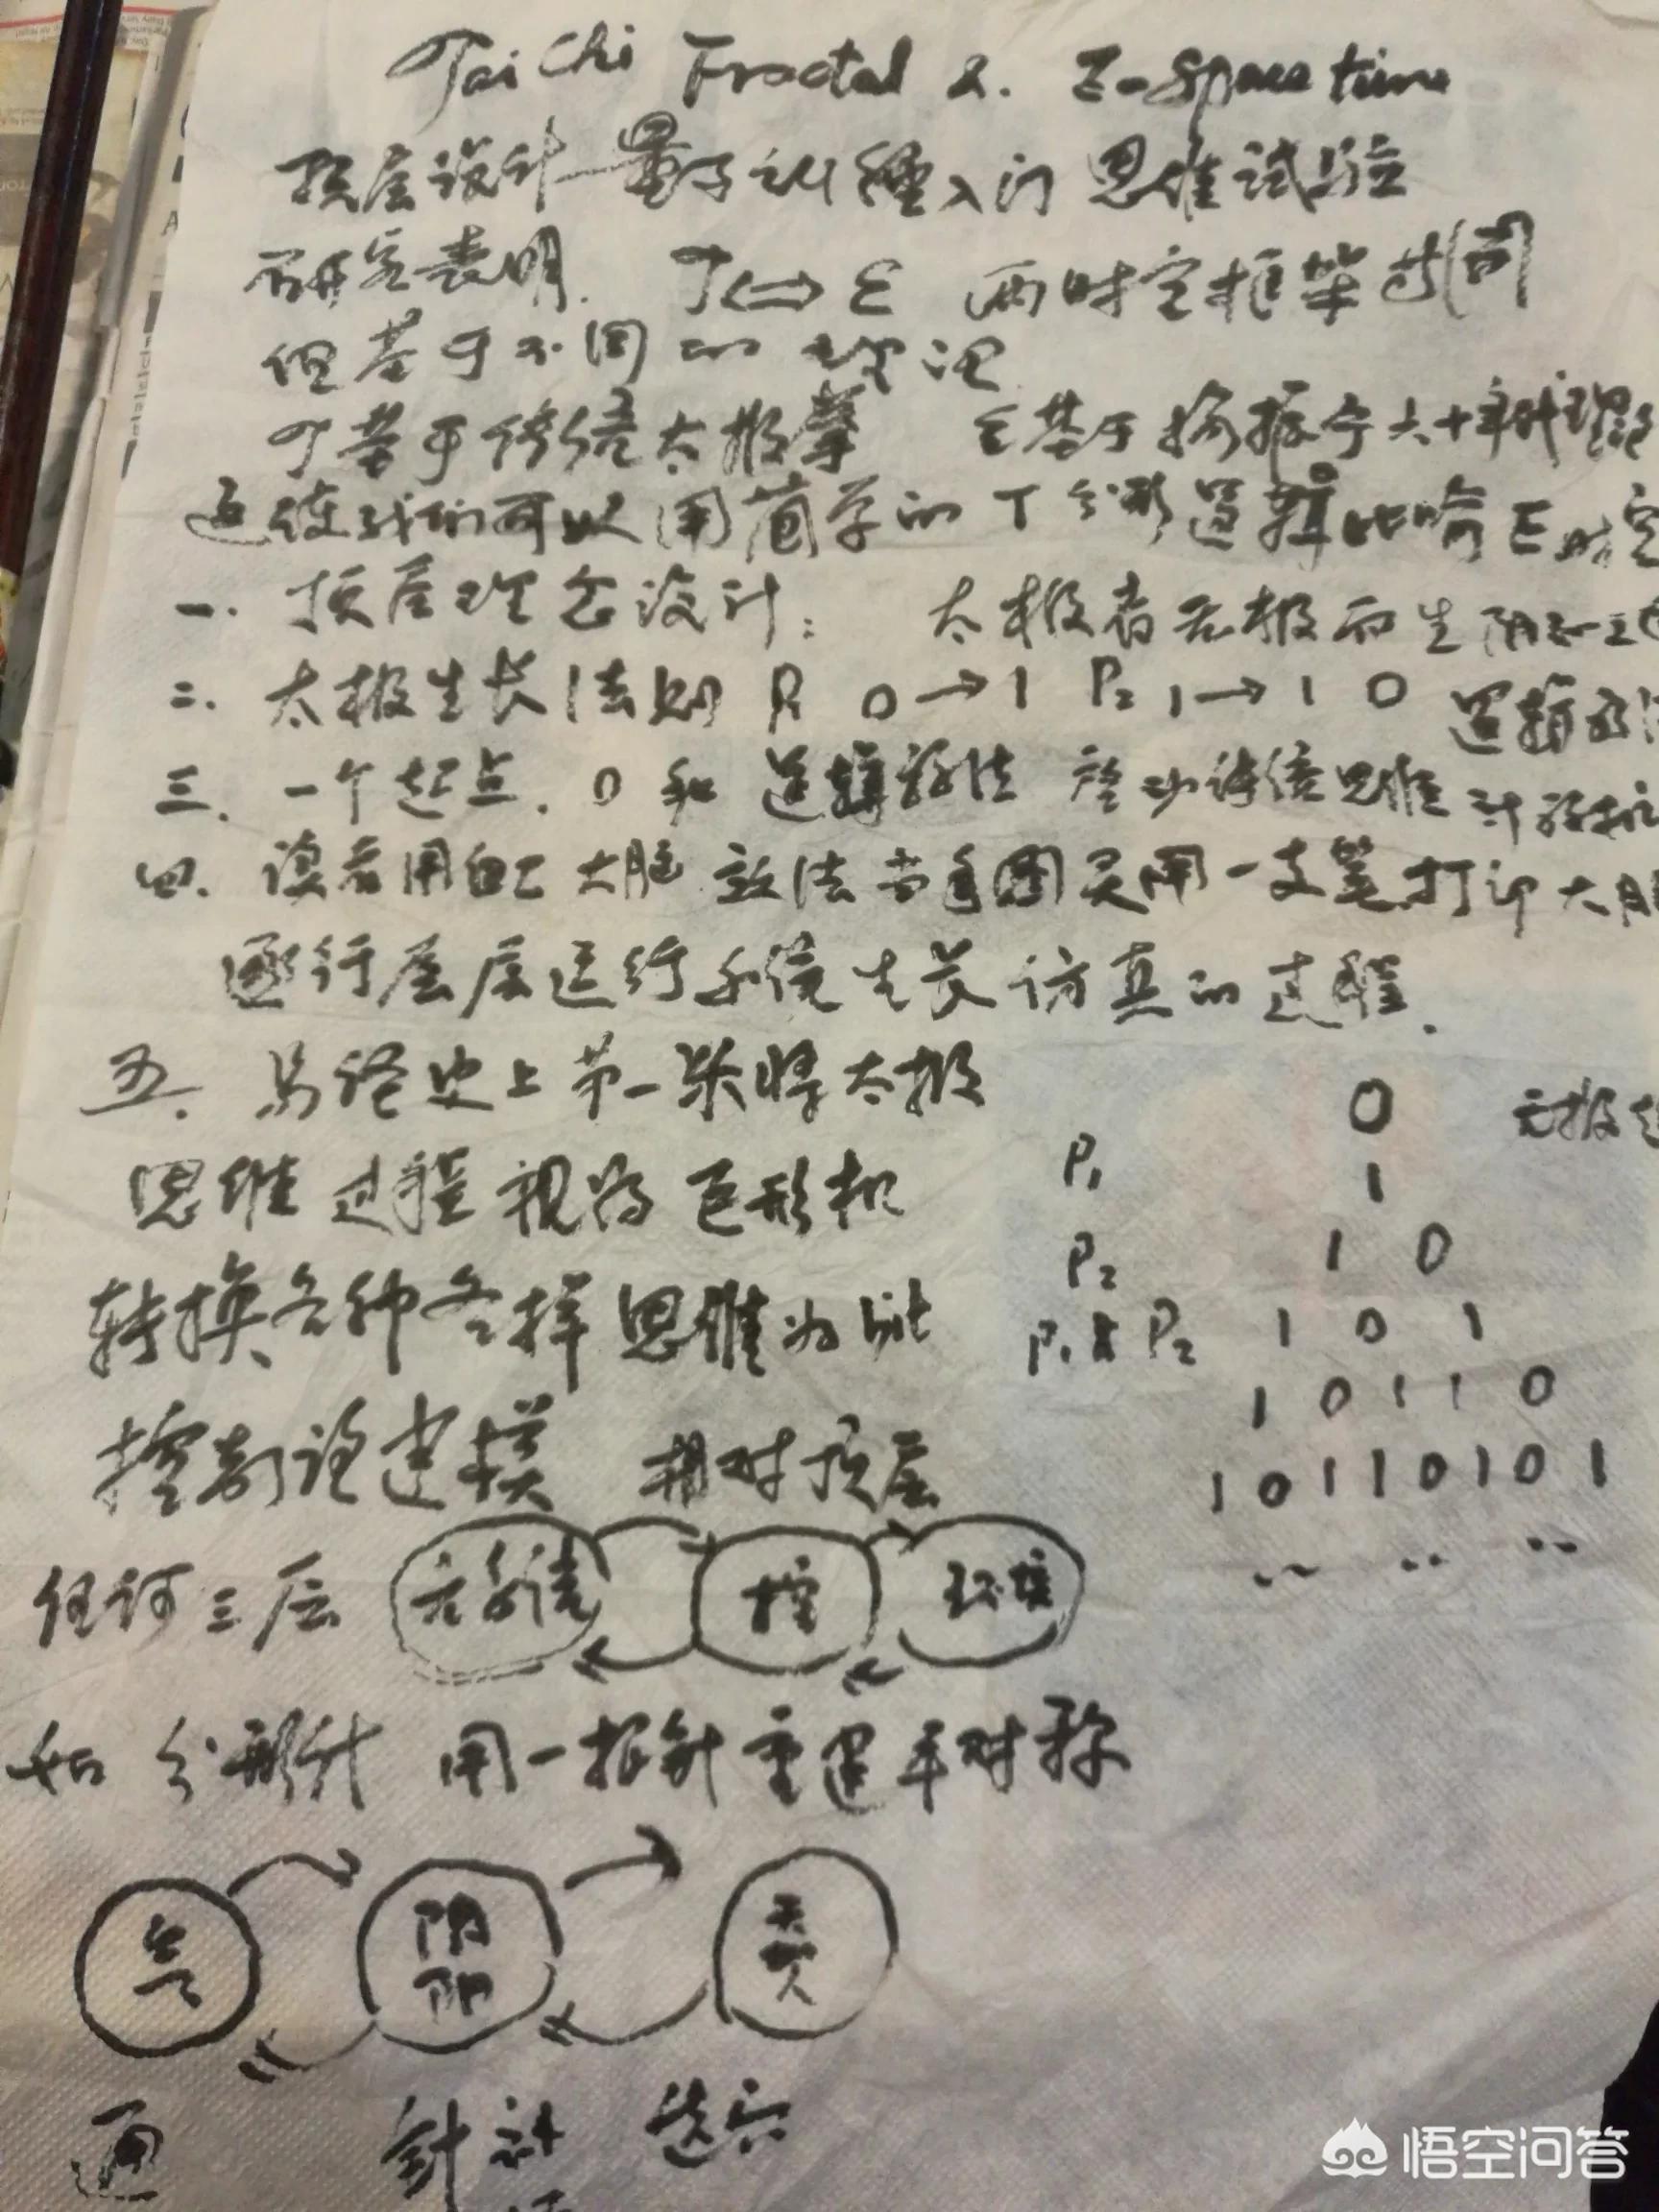 Tai Chi Fractal & E-Space time
顶层设计 量子纠缠入门 思维试验
研究表明. T⟺E 两时空框架过(同)
但基于不同的
T基于传统太极拳 E基于杨振宁六十年代理论
这使我们可以用简单的T分形逻辑比喻E时空
一. 顶层理念设计: 太极者无极而生 阴阳之
二. 太极生长法则 P1 0→1 P2 1→1 0 逻辑
三. 一个起点. 0和逻辑 传统思维 计
四. 读者用自己大脑 效法 图灵用一支笔打印大脑
逐行层层运行系统生长仿真的过程.
五. 易经史上第一次将太极
思维过程视为 形机
转换各种各样思维为bit
控制论建模 相对顶层
0 无极
P1 1
P2 1 0
P1&P2 1 0 1
1 0 1 1 0
1 0 1 1 0 1 0 1
.. .. ..
任何三层 元系统 控 环境
如分形针 用一根针重建平对称
气 阴阳 天人
通 针
悟空问答